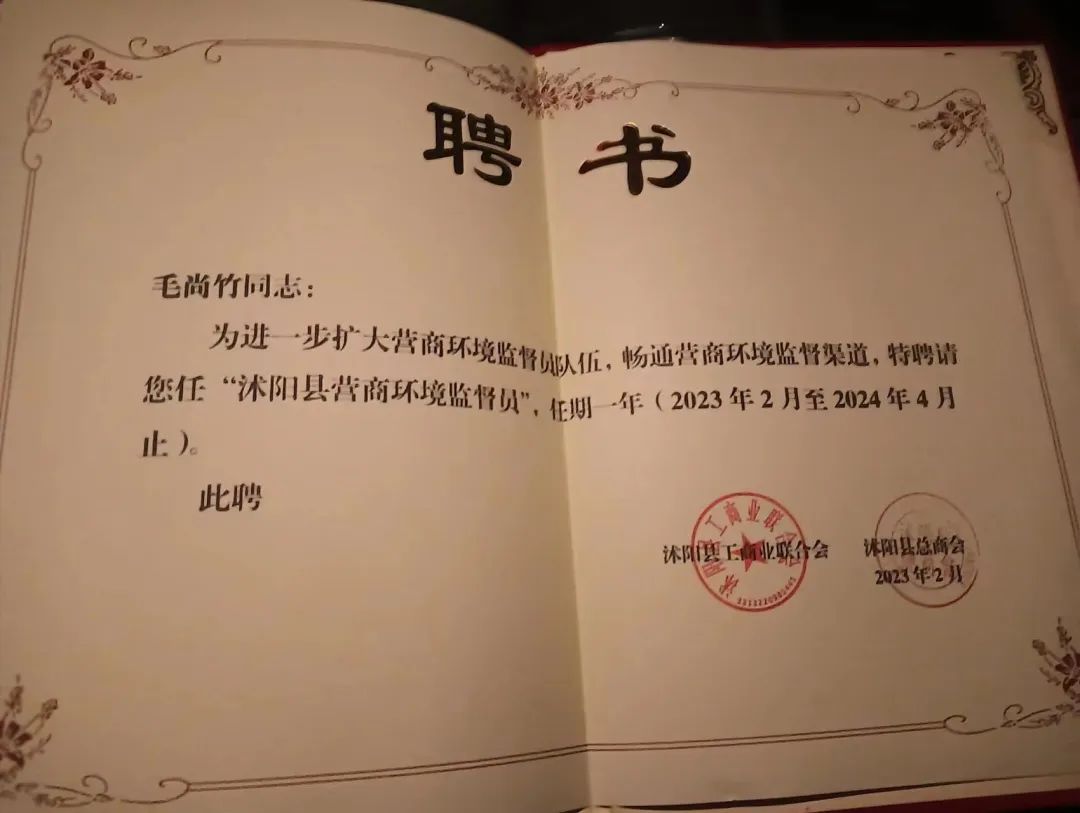 聘书
毛尚竹同志：
为进一步扩大营商环境监督员队伍，畅通营商环境监督渠道，特聘请
您任“沭阳县营商环境监督员”，任期一年（2023年2月至2024年4月
止）。
此聘
沭阳县工商业联合会 沭阳县总商会
2023年2月
沭阳县工商业联合会